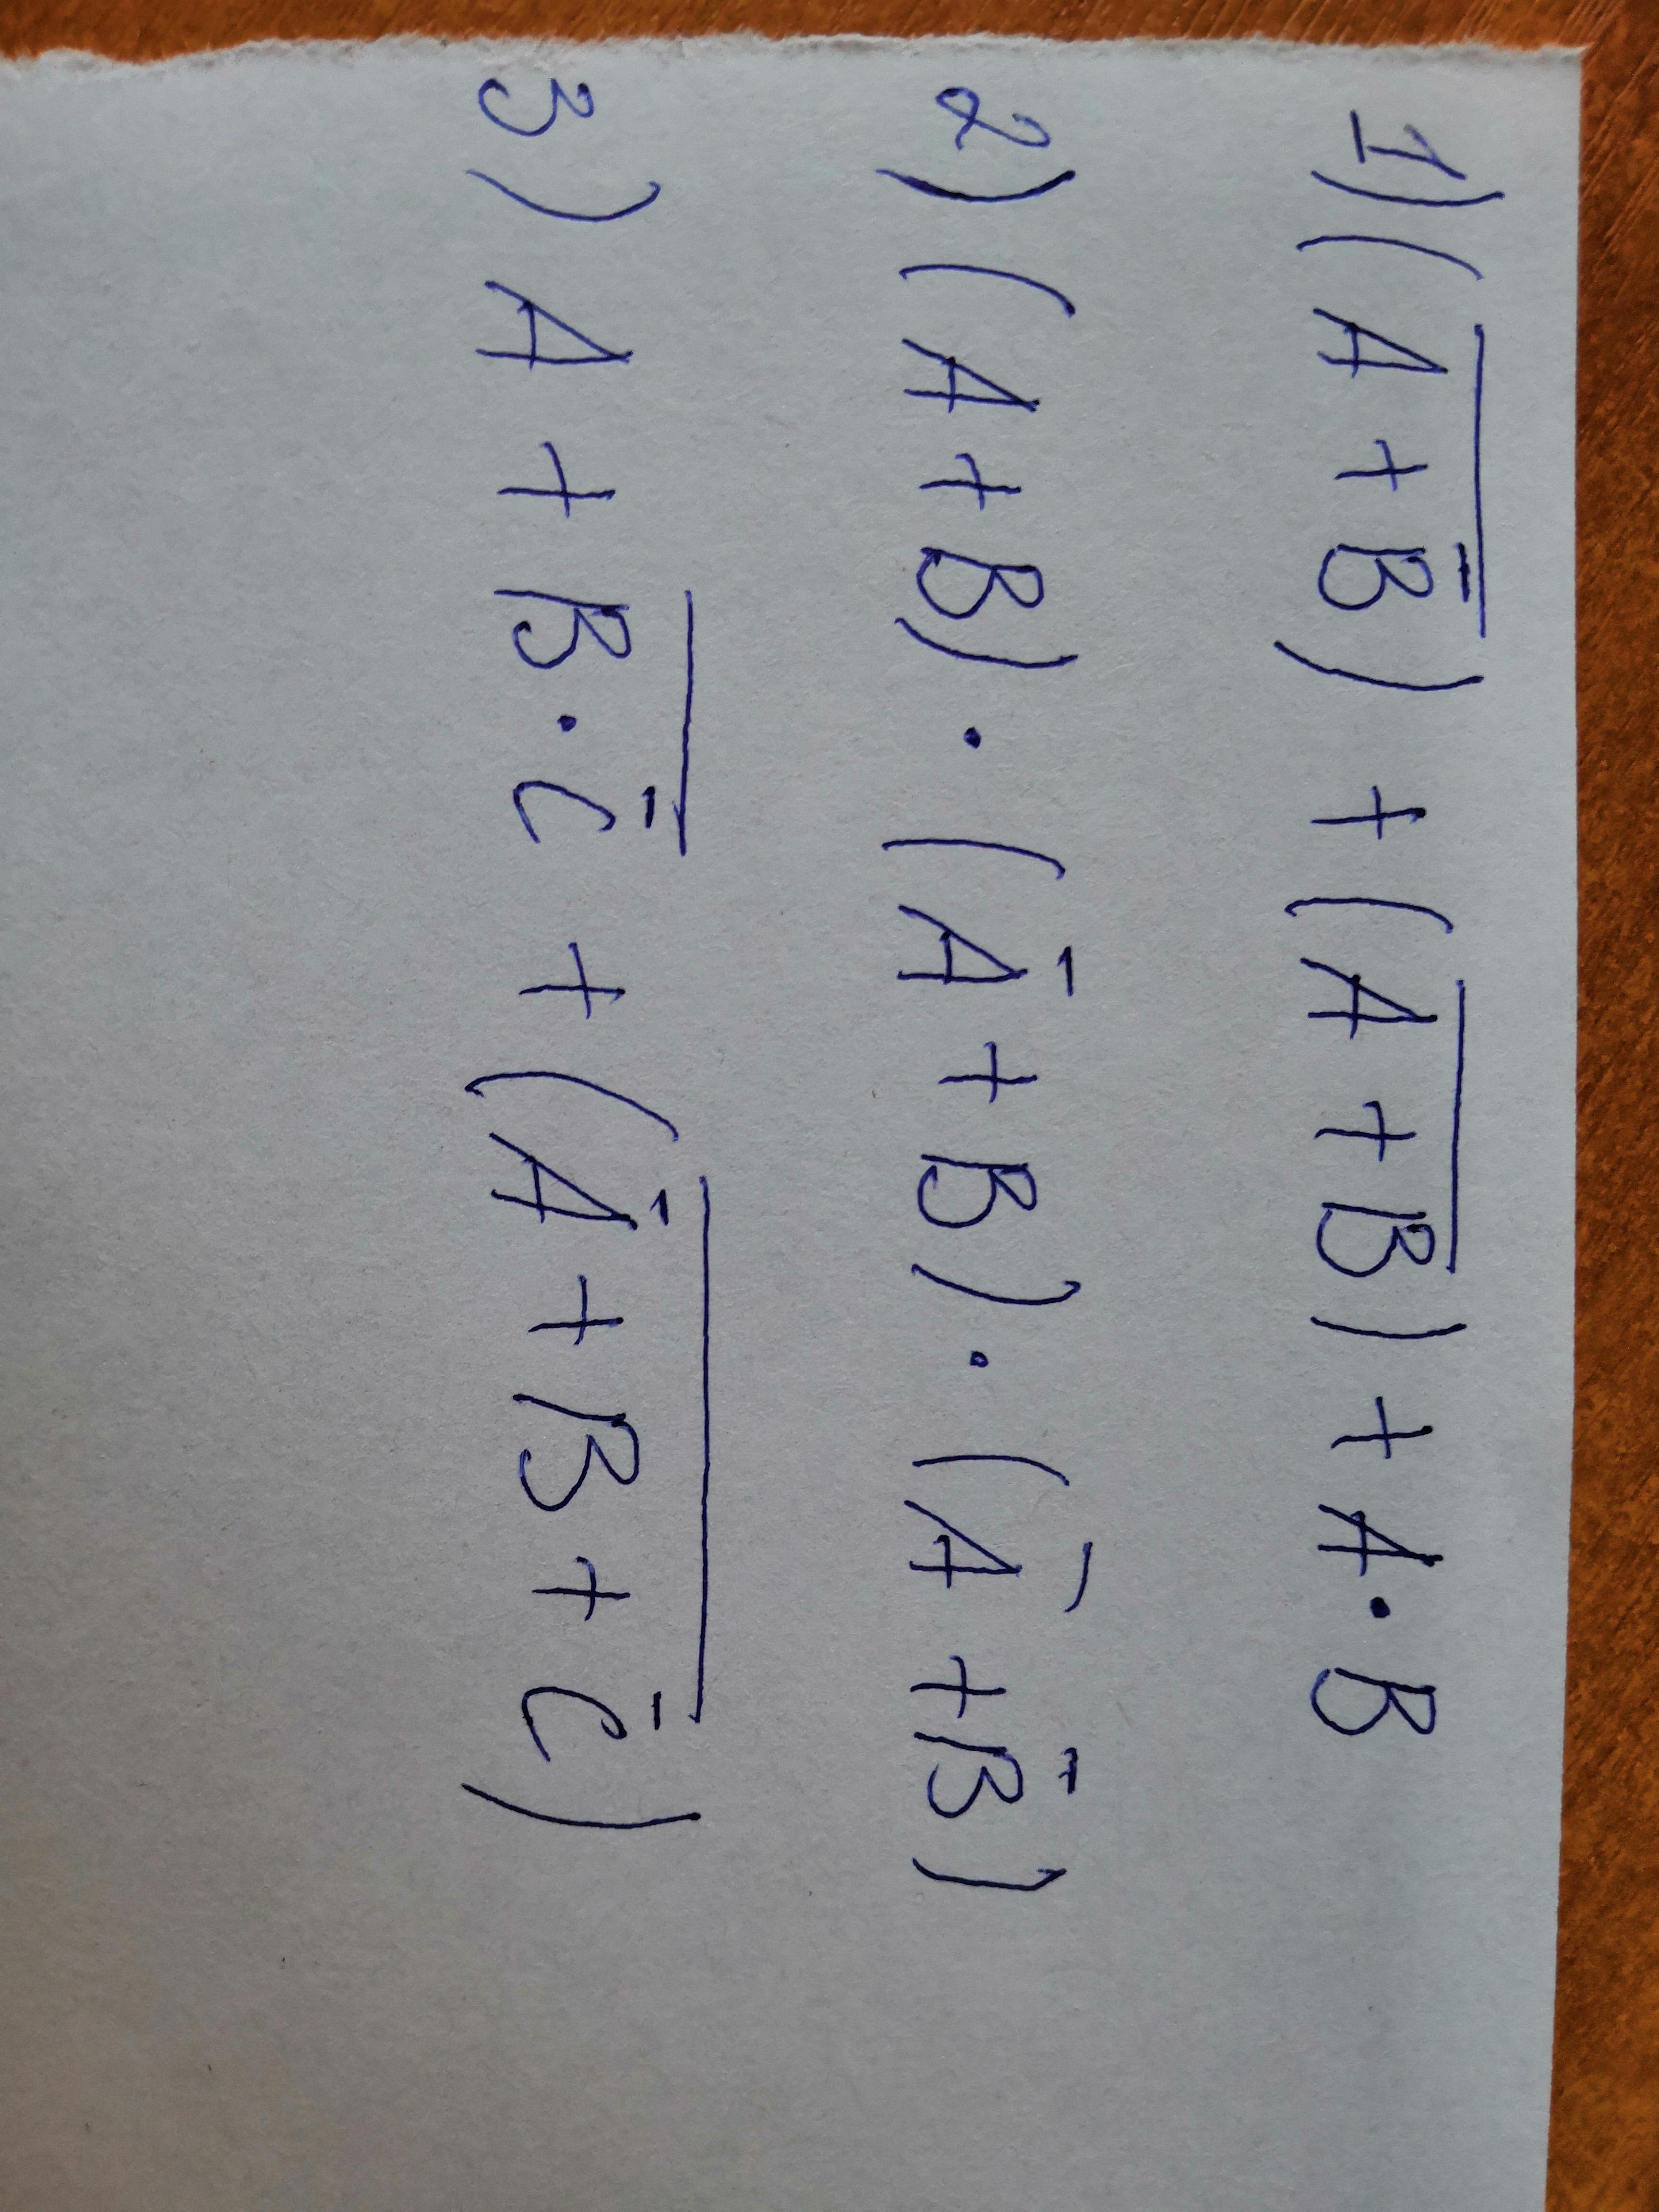 1) (\overline{A+\overline{B}}) + (\overline{A+B}) + A·B
2) (A+B)·(\overline{A}+B)·(\overline{A}+\overline{B})
3) A+\overline{B·\overline{C}}+(\overline{\overline{A}+B+\overline{C}})